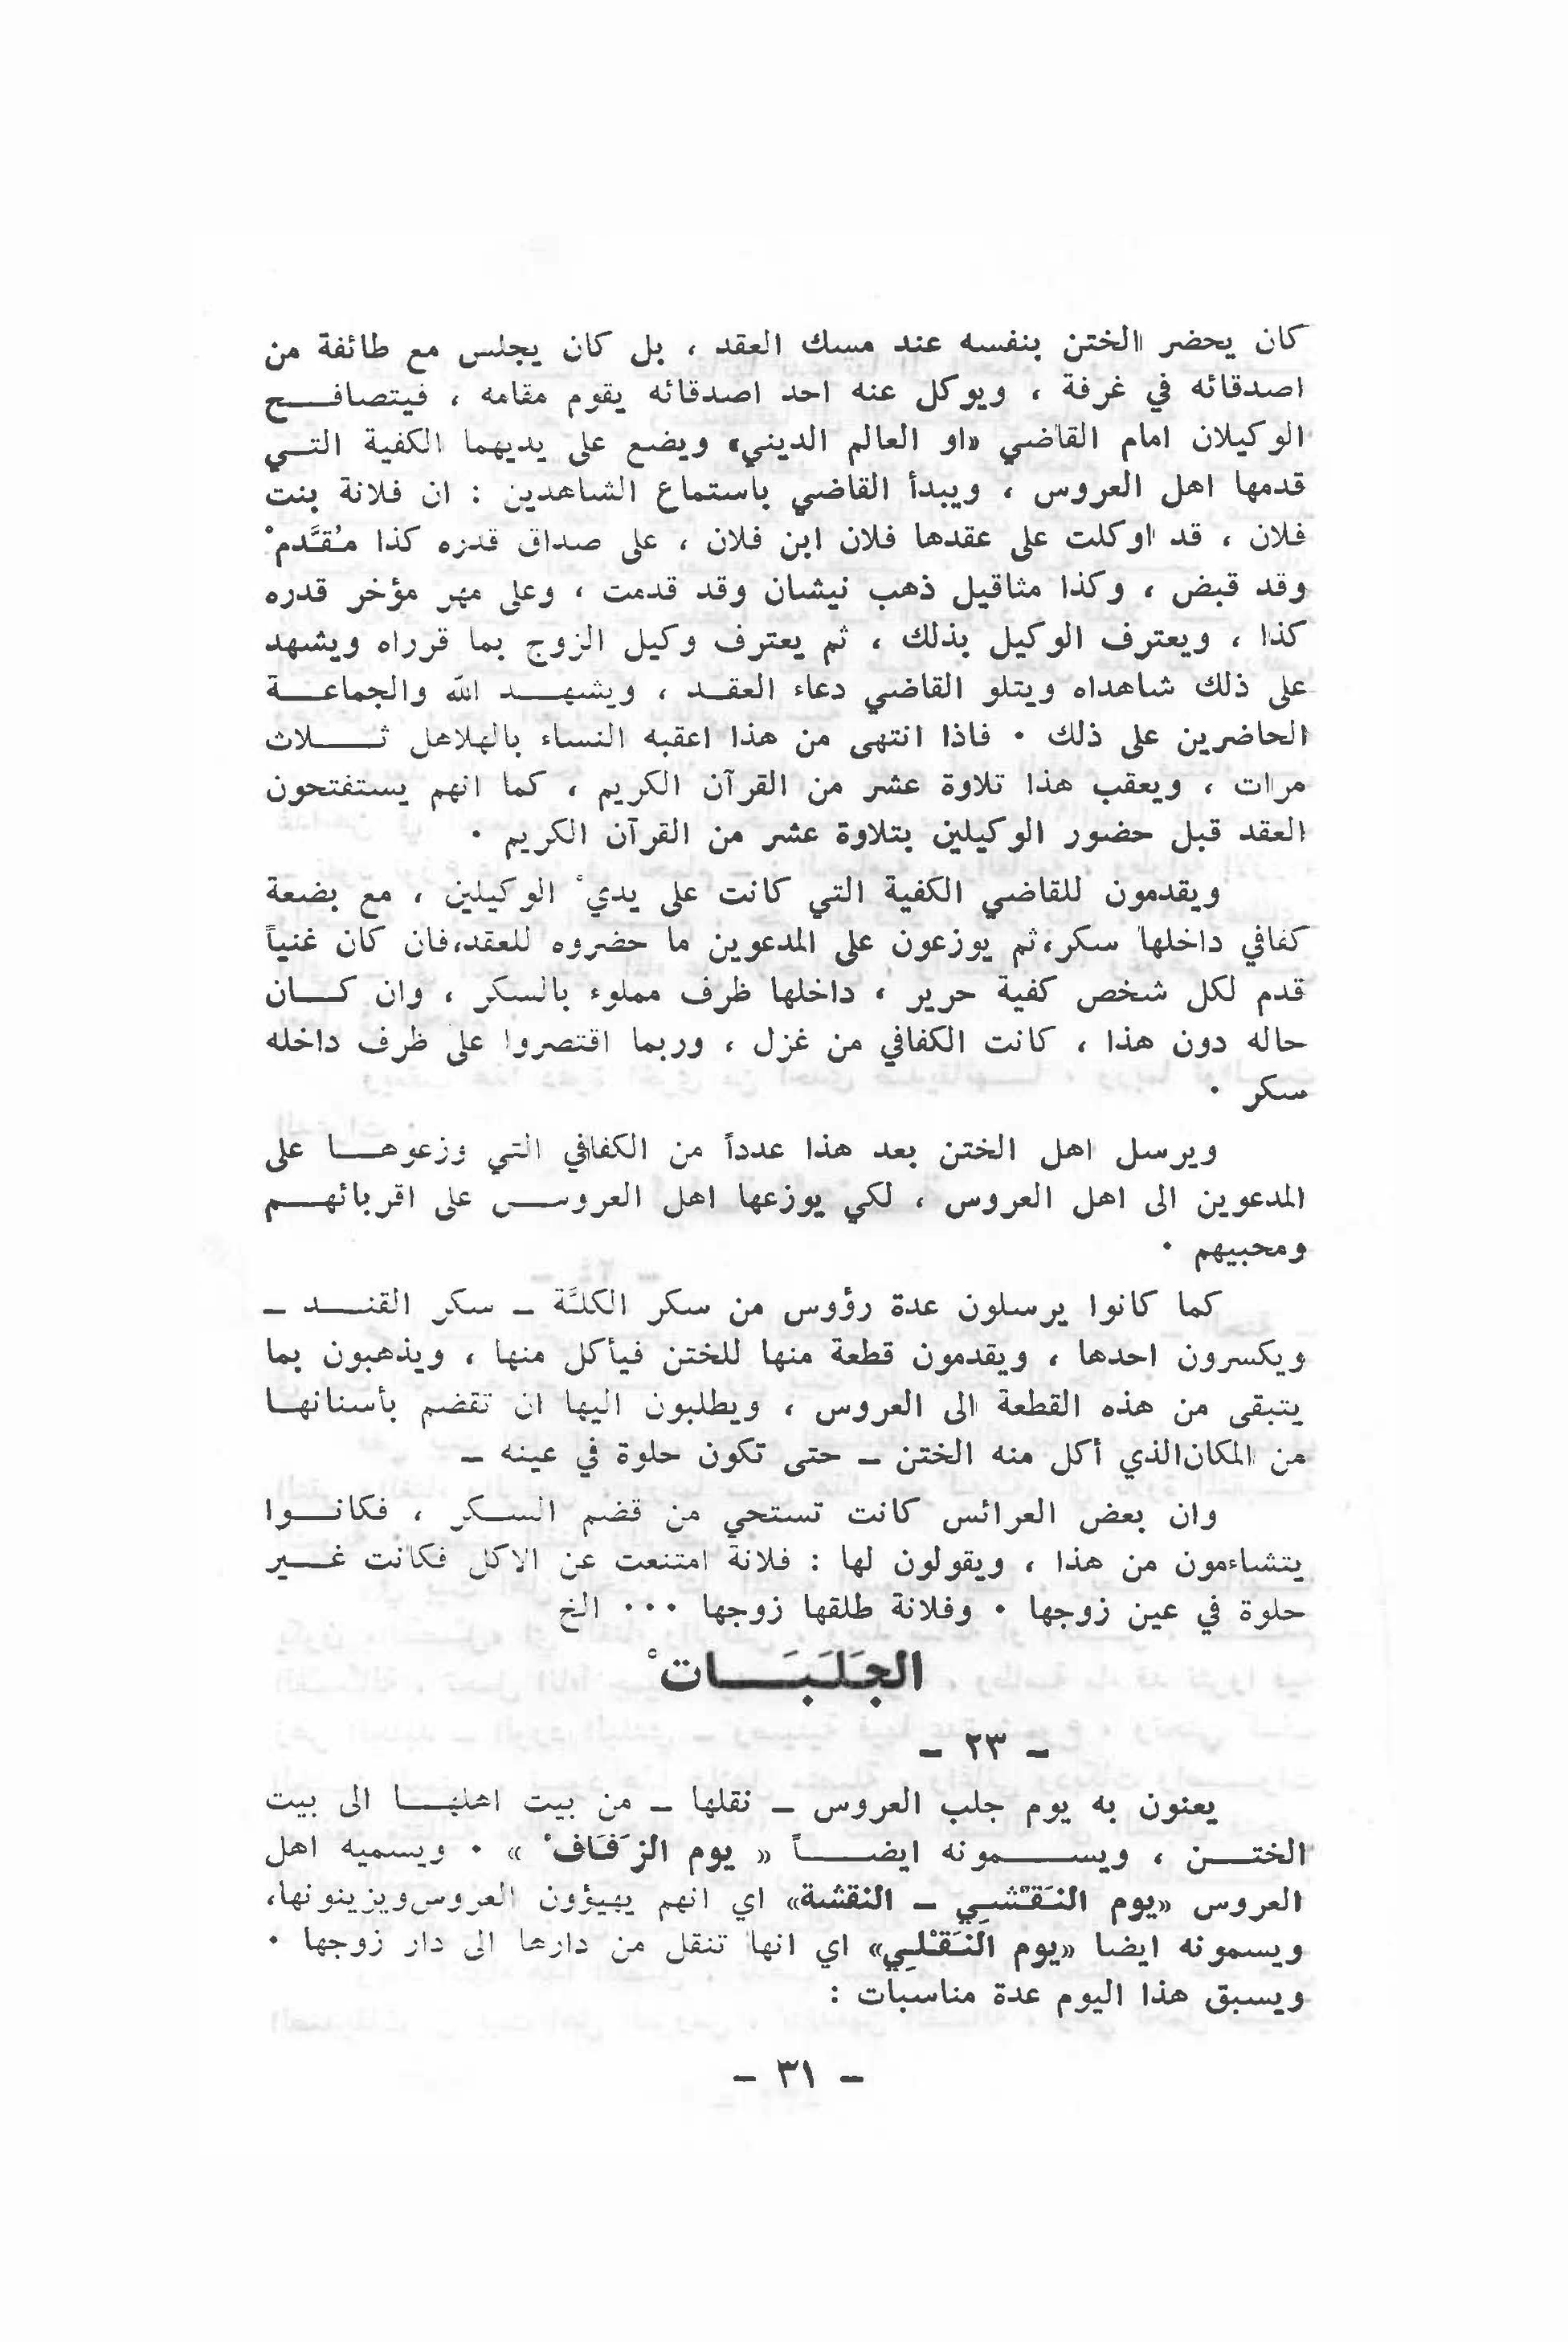 كان يحضر الختن بنفسه عند مسك العقد ، بل كان يجلس مع طائفة من
اصدقائه في غرفة ، ويوكل عنه احد اصدقائه يقوم مقامه ، فيتصافح
الوكيلان امام القاضي «او العالم الديني» ويضع على يديهما الكفية التي
قدمها اهل العروس ، ويبدأ القاضي باستماع الشاهدين : ان فلانة بنت
فلان ، قد اوكلت على عقدها فلان ابن فلان ، على صداق قدره كذا مُقَدَّمْ
وقد قبض ، وكذا مثاقيل ذهب نيشان وقد قدمت ، وعلى مهر مؤخر قدره
كذا ، ويعترف الوكيل بذلك ، ثم يعترف وكيل الزوج بما قرراه ويشهد
على ذلك شاهداه ويتلو القاضي دعاء العقد ، ويشهد الله والجماعة
الحاضرين على ذلك . فاذا انتهى من هذا اعقبه النساء بالهلاهل ثلاث
مرات ، ويعقب هذا تلاوة عشر من القرآن الكريم ، كما انهم يستفتحون
العقد قبل حضور الوكيلين بتلاوة عشر من القرآن الكريم .
ويقدمون للقاضي الكفية التي كانت على يديْ الوكيلين ، مع بضعة
كفافي داخلها سكر،ثم يوزعون على المدعوين ما حضروه للعقد،فان كان غنياً
قدم لكل شخص كفية حرير ، داخلها ظرف مملوء بالسكر ، وان كان
حاله دون هذا ، كانت الكفافي من غزل ، وربما اقتصروا على ظرف داخله
سكر .
ويرسل اهل الختن بعد هذا عدداً من الكفافي التي وزعوها على
المدعوين الى اهل العروس ، لكي يوزعها اهل العروس على اقربائهم
ومحبيهم .
كما كانوا يرسلون عدة رؤوس من سكر الكلَّة – سكر القند –
ويكسرون احدها ، ويقدمون قطعة منها للختن فيأكل منها ، ويذهبون بما
يتبقى من هذه القطعة الى العروس ، ويطلبون اليها ان تقضم بأسنانها
من المكان الذي أكل منه الختن – حتى تكون حلوة في عينه –
وان بعض العرائس كانت تستحي من قضم السكر ، فكانوا
يتشاءمون من هذا ، ويقولون لها : فلانة امتنعت عن الاكل فكانت غير
حلوة في عين زوجها . وفلانة طلقها زوجها ... الخ
الجَلَبَاتْ
– ٢٣ –
يعنون به يوم جلب العروس – نقلها – من بيت اهلها الى بيت
الختن ، ويسمونه ايضاً « يوم الزَفَافْ » . ويسميه اهل
العروس «يوم النَقْشِي – النقشة» اي انهم يهيؤون العروس ويزينونها،
ويسمونه ايضا «يوم النَقْلِي» اي انها تنقل من دارها الى دار زوجها .
ويسبق هذا اليوم عدة مناسبات :
– ٣١ –